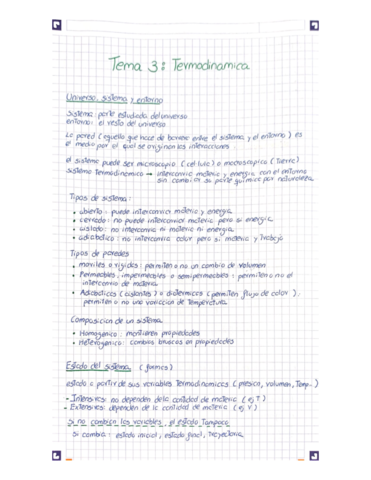 Tema 3: Termodinamica
Universo, sistema y entorno
Sistema: parte estudiada del universo
entorno: el resto del universo
La pared (aquello que hace de barrera entre el sistema y el entorno) es
el medio por el qual se originan las interacciones
el sistema puede ser microscopio (celula) o macroscopico (Tierra)
Sistema termodinamico → intercanvia materia y energia con el entorno
sin cambiar su parte quimica por naturaleza
Tipos de sistema:
• abierto: puede intercanviar materia y energia
• cerrado: no puede intercanviar materia pero si energia
• aislado: no intercanvia ni materia ni energia
• adiabatico: no intercanvia calor pero si materia y trabajo
Tipos de paredes
• moviles o rigidas: permiten o no un cambio de volumen
• Permeables, impermeables o semipermeables: permiten o no el
intercanvio de materia
• Adiabaticas (aislantes) o diatermicas (permiten flujo de calor):
permiten o no una variacion de Temperatura
Composicion de un sistema
• Homogenico: mantienen propiedades
• Heterogenico: cambios bruscos en propiedades
Estado del sistema (formas)
estado a partir de sus variables termodinamicas (presion, volumen, Temp...)
- Intensivas: no dependen de la cantidad de materia (ej T)
- Extensivas: dependen de la cantidad de materia (ej V)
Si no cambian las variables, el estado tampoco
Si cambia: estado inicial, estado final, trayectoria